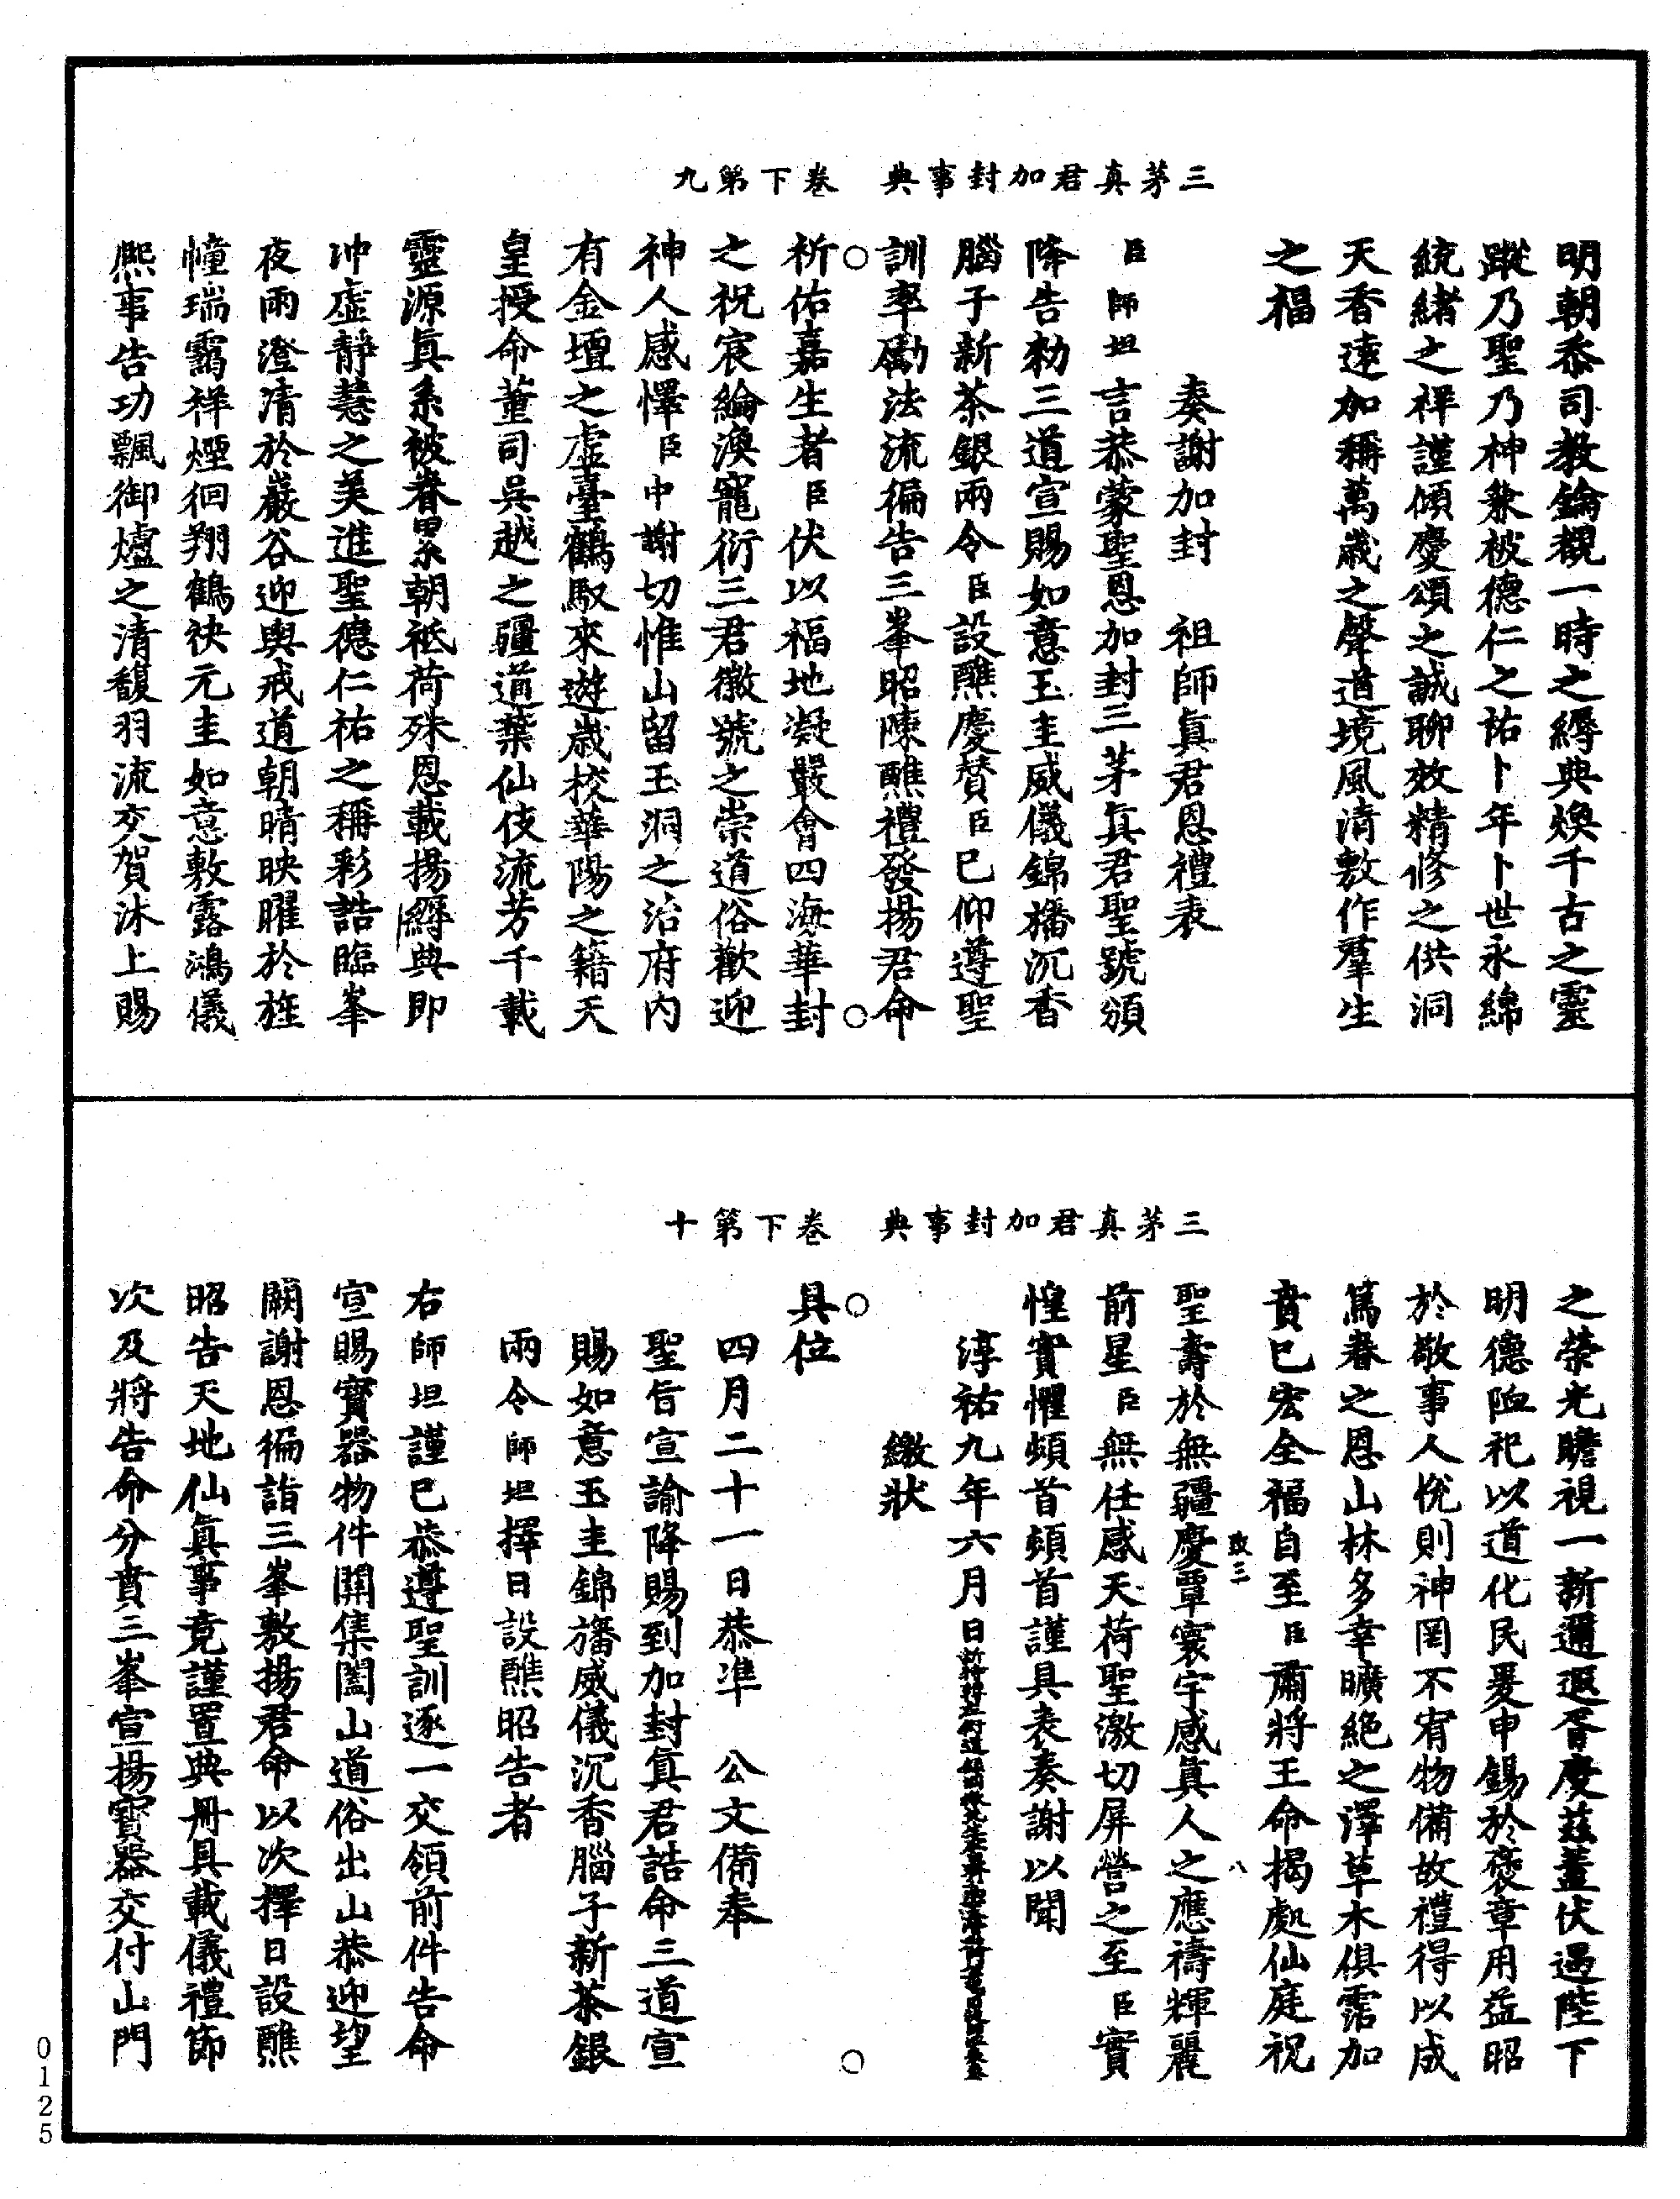 三茅真君加封事典　卷下第九
明朝忝司教鑰覩一時之縟典煥千古之靈
蹤乃聖乃神兼被德仁之祐卜年卜世永綿
統緒之祥謹傾慶頌之誠聊效精修之供洞
天香遠加稱萬歲之聲道境風清敷作羣生
之福
奏謝加封　祖師眞君恩禮表
臣師坦言恭蒙聖恩加封三茅眞君聖號頒
降告勑三道宣賜如意玉圭威儀錦旛沉香
腦子新茶銀兩令臣設醮慶贊臣已仰遵聖
訓率勵法流徧告三峯昭陳醮禮發揚君命
祈佑嘉生者臣伏以福地凝嚴會四海華封
之祝宸綸渙寵衍三君徽號之崇道俗歡迎
神人感懌臣中謝切惟山留玉洞之治府内
有金壇之虛臺鶴馭來遊歲校華陽之籍天
皇授命董司吳越之疆道葉仙伎流芳千載
靈源眞系被眷累朝祗荷殊恩載揚縟典即
冲虛靜慧之美進聖德仁祐之稱彩誥臨峯
夜雨澄清於巖谷迎輿戒道朝晴映曜於旌
幢瑞靄祥煙徊翔鶴袂元圭如意敷露鴻儀
熈事告功飄御爐之清馥羽流交賀沐上賜
三茅真君加封事典　卷下第十
之榮光瞻視一新邇遐胥慶茲蓋伏遇陛下
明德䘏祀以道化民爰申錫於褒章用益昭
於敬事人悅則神罔不宥物備故禮得以成
篤眷之恩山林多幸曠絶之澤草木俱霑加
賁已宏全福自至臣肅將王命揭處仙庭祝
八
聖壽於無疆慶覃寰宇感眞人之應禱輝麗
前星臣無任感天荷聖激切屏營之至臣實
惶實懼頓首頓首謹具表奏謝以聞
淳祐九年六月日
繳狀
具位
四月二十一日恭準　公文備奉
聖旨宣諭降賜到加封眞君誥命三道宣
賜如意玉圭錦旛威儀沉香腦子新茶銀
兩令師坦擇日設醮昭告者
右師坦謹已恭遵聖訓逐一交領前件告命
宣賜寳器物件開集闔山道俗出山恭迎望
闕謝恩徧詣三峯敷揚君命以次擇日設醮
昭告天地仙眞事竟謹置典册具載儀禮節
次及將告命分賁三峯宣揚寳器交付山門
0125